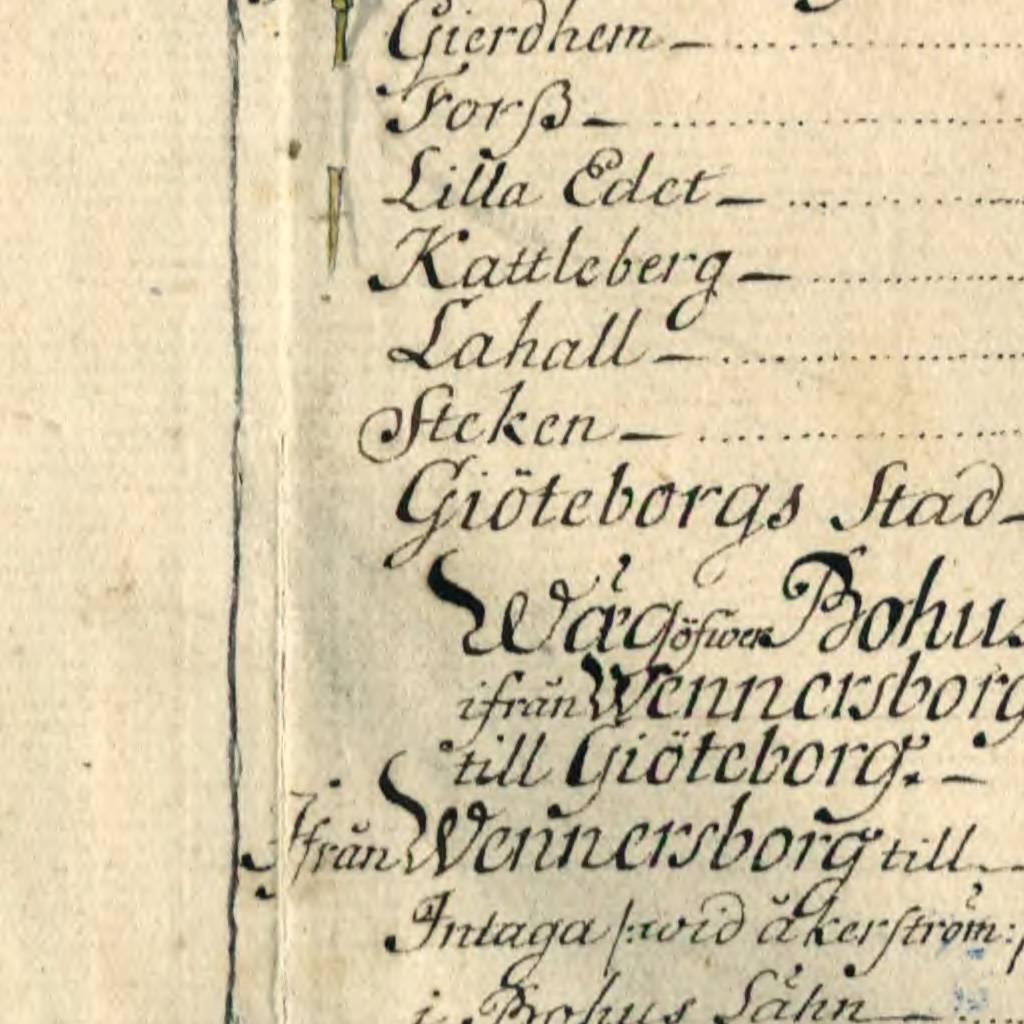 Gierdhem
Forß
Lilla Edet
Kattleberg
Lahall
Steken
Giöteborgs Stad
Wäg öfwer Bohus
ifrån Wennersborg
till Giöteborg.
Ifrån Wennersborg till
Intaga /:wid åkerström:/
i Bohus Lähn